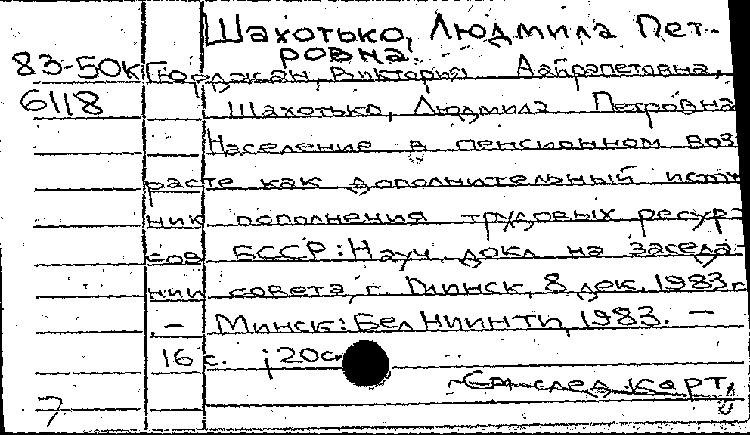 Шахотько, Людмила Пет-
ровна.
83-50К Гюрджян, Виктория Айрапетовна,
6118 Шахотько, Людмила Петровна
Население в пенсионном воз
расте как дополнительный источ
ник пополнения трудовых ресур-
сов БССР: Науч. докл на заседа-
нии совета, г. Минск, 8 дек. 1983г
.— Минск: Бел НИИНТИ, 1983. —
16 с. ; 20с
См. след. карт.
7